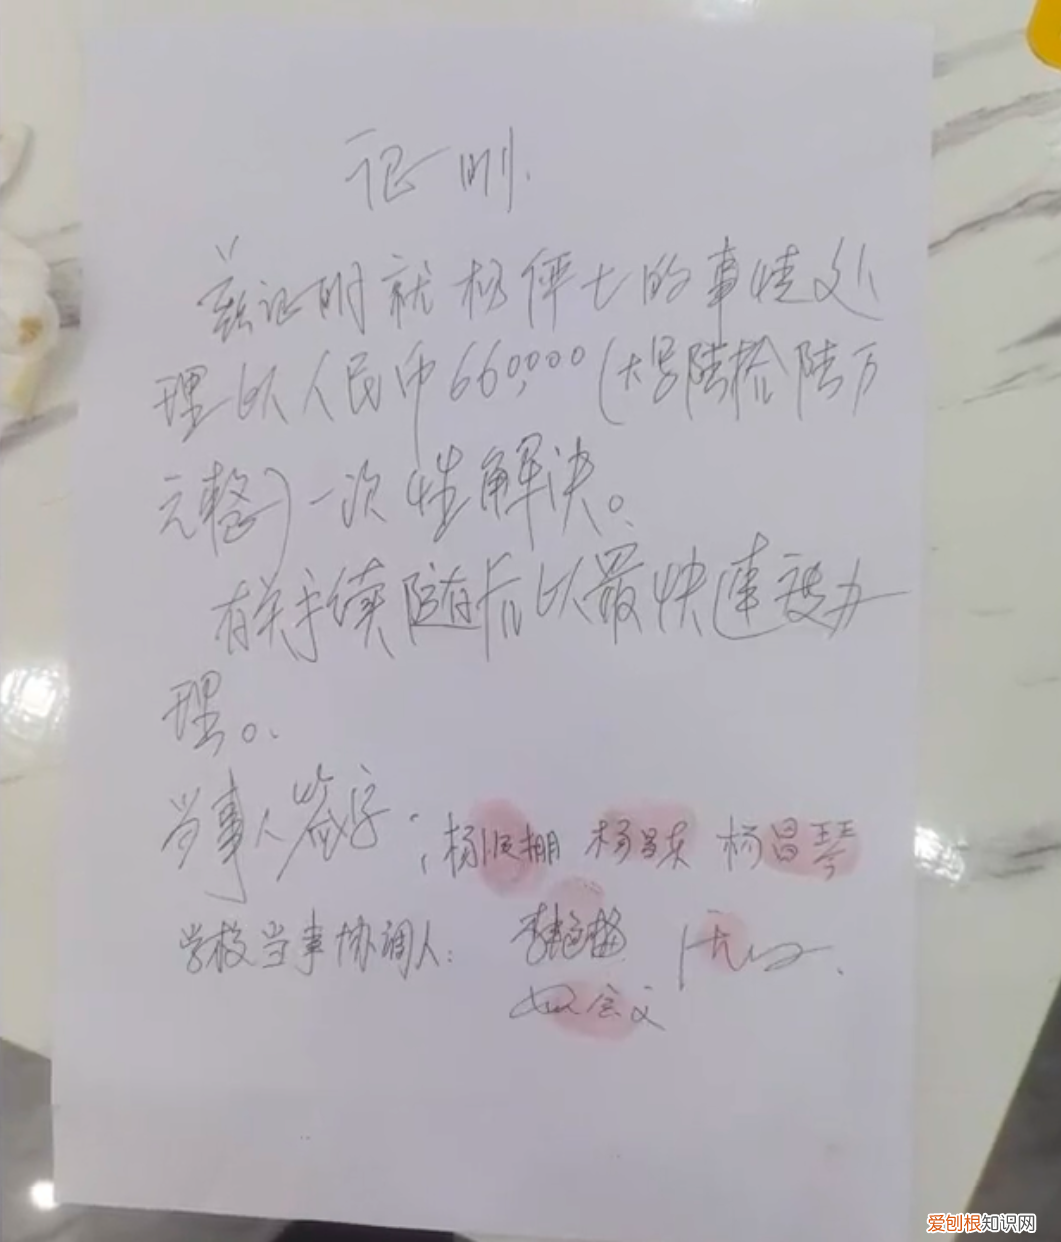 证明
兹证明就杨伊七的事情处
理以人民币660,000(大写陆拾陆万
元整)一次性解决。
有关手续随后以最快速度办
理。
当事人签字: 杨 棚 杨昌东 杨昌琴
学校当事协调人:
会文
爱刨根知识网